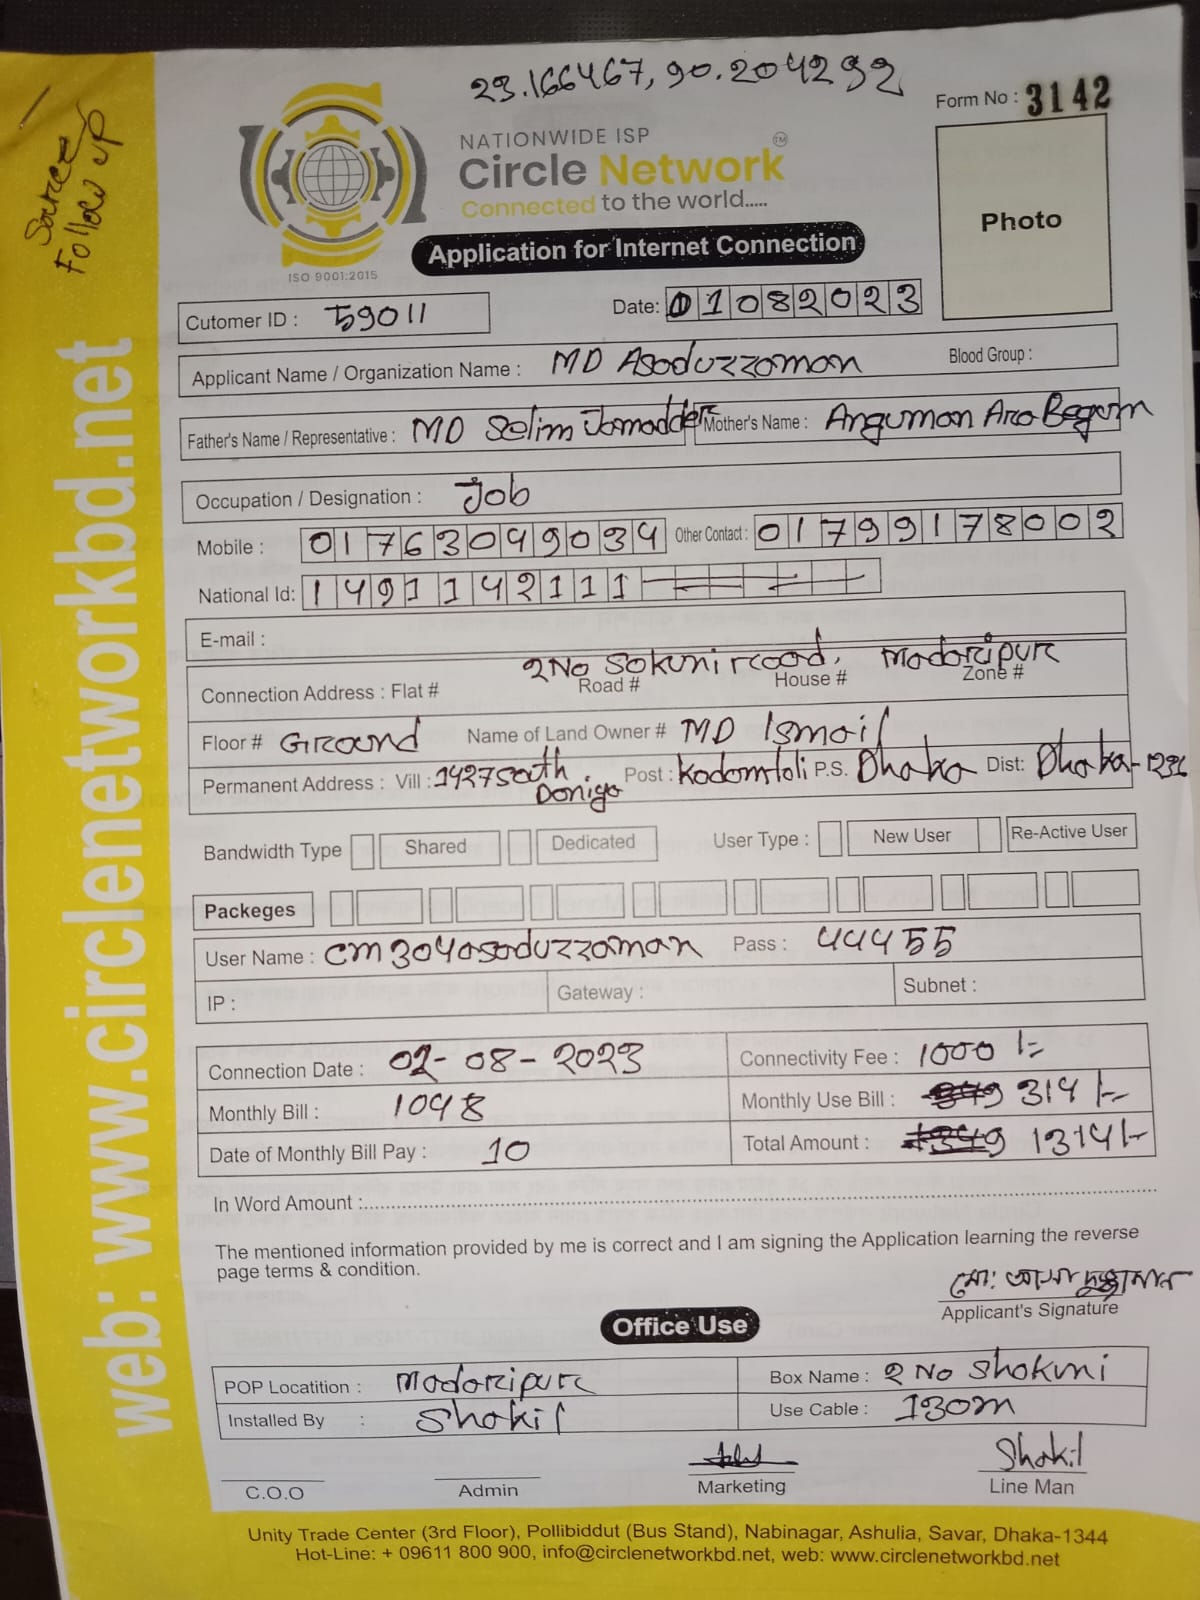 23.166467, 90.204292
Form No : 3142
Source
Follow up
NATIONWIDE ISP
Circle Network TM
Connected to the world.....
ISO 9001:2015
Photo
Application for Internet Connection
Cutomer ID : 59011
Date: 01082023
Applicant Name / Organization Name : MD Asaduzzaman Blood Group :
Father's Name / Representative : MD Selim Jamadder Mother's Name : Anguman Ara Begum
Occupation / Designation : Job
Mobile : 01763049034 Other Contact : 01799178002
National Id: 1491142111
E-mail :
Connection Address : Flat # 2 No Sokuni road, Madaripur Road # House # Zone #
Floor # Ground Name of Land Owner # MD Ismail
Permanent Address : Vill : 1427 South Doniya Post : Kodomtoli P.S. Dhaka Dist: Dhaka-1236
Bandwidth Type Shared Dedicated User Type : New User Re-Active User
Packeges
User Name : cm304asaduzzaman Pass : 44455
IP : Gateway : Subnet :
Connection Date : 02-08-2023 Connectivity Fee : 1000 /=
Monthly Bill : 1048 Monthly Use Bill : 314 /-
Date of Monthly Bill Pay : 10 Total Amount : 1314/-
In Word Amount :
The mentioned information provided by me is correct and I am signing the Application learning the reverse
page terms & condition.
মো: আসাদুজ্জামান
Applicant's Signature
Office Use
POP Locatition : Madaripur Box Name : 2 No Shokuni
Installed By : Shakil Use Cable : 130m
Shakil
C.O.O Admin Marketing Line Man
Unity Trade Center (3rd Floor), Pollibiddut (Bus Stand), Nabinagar, Ashulia, Savar, Dhaka-1344
Hot-Line: + 09611 800 900, info@circlenetworkbd.net, web: www.circlenetworkbd.net
web: www.circlenetworkbd.net